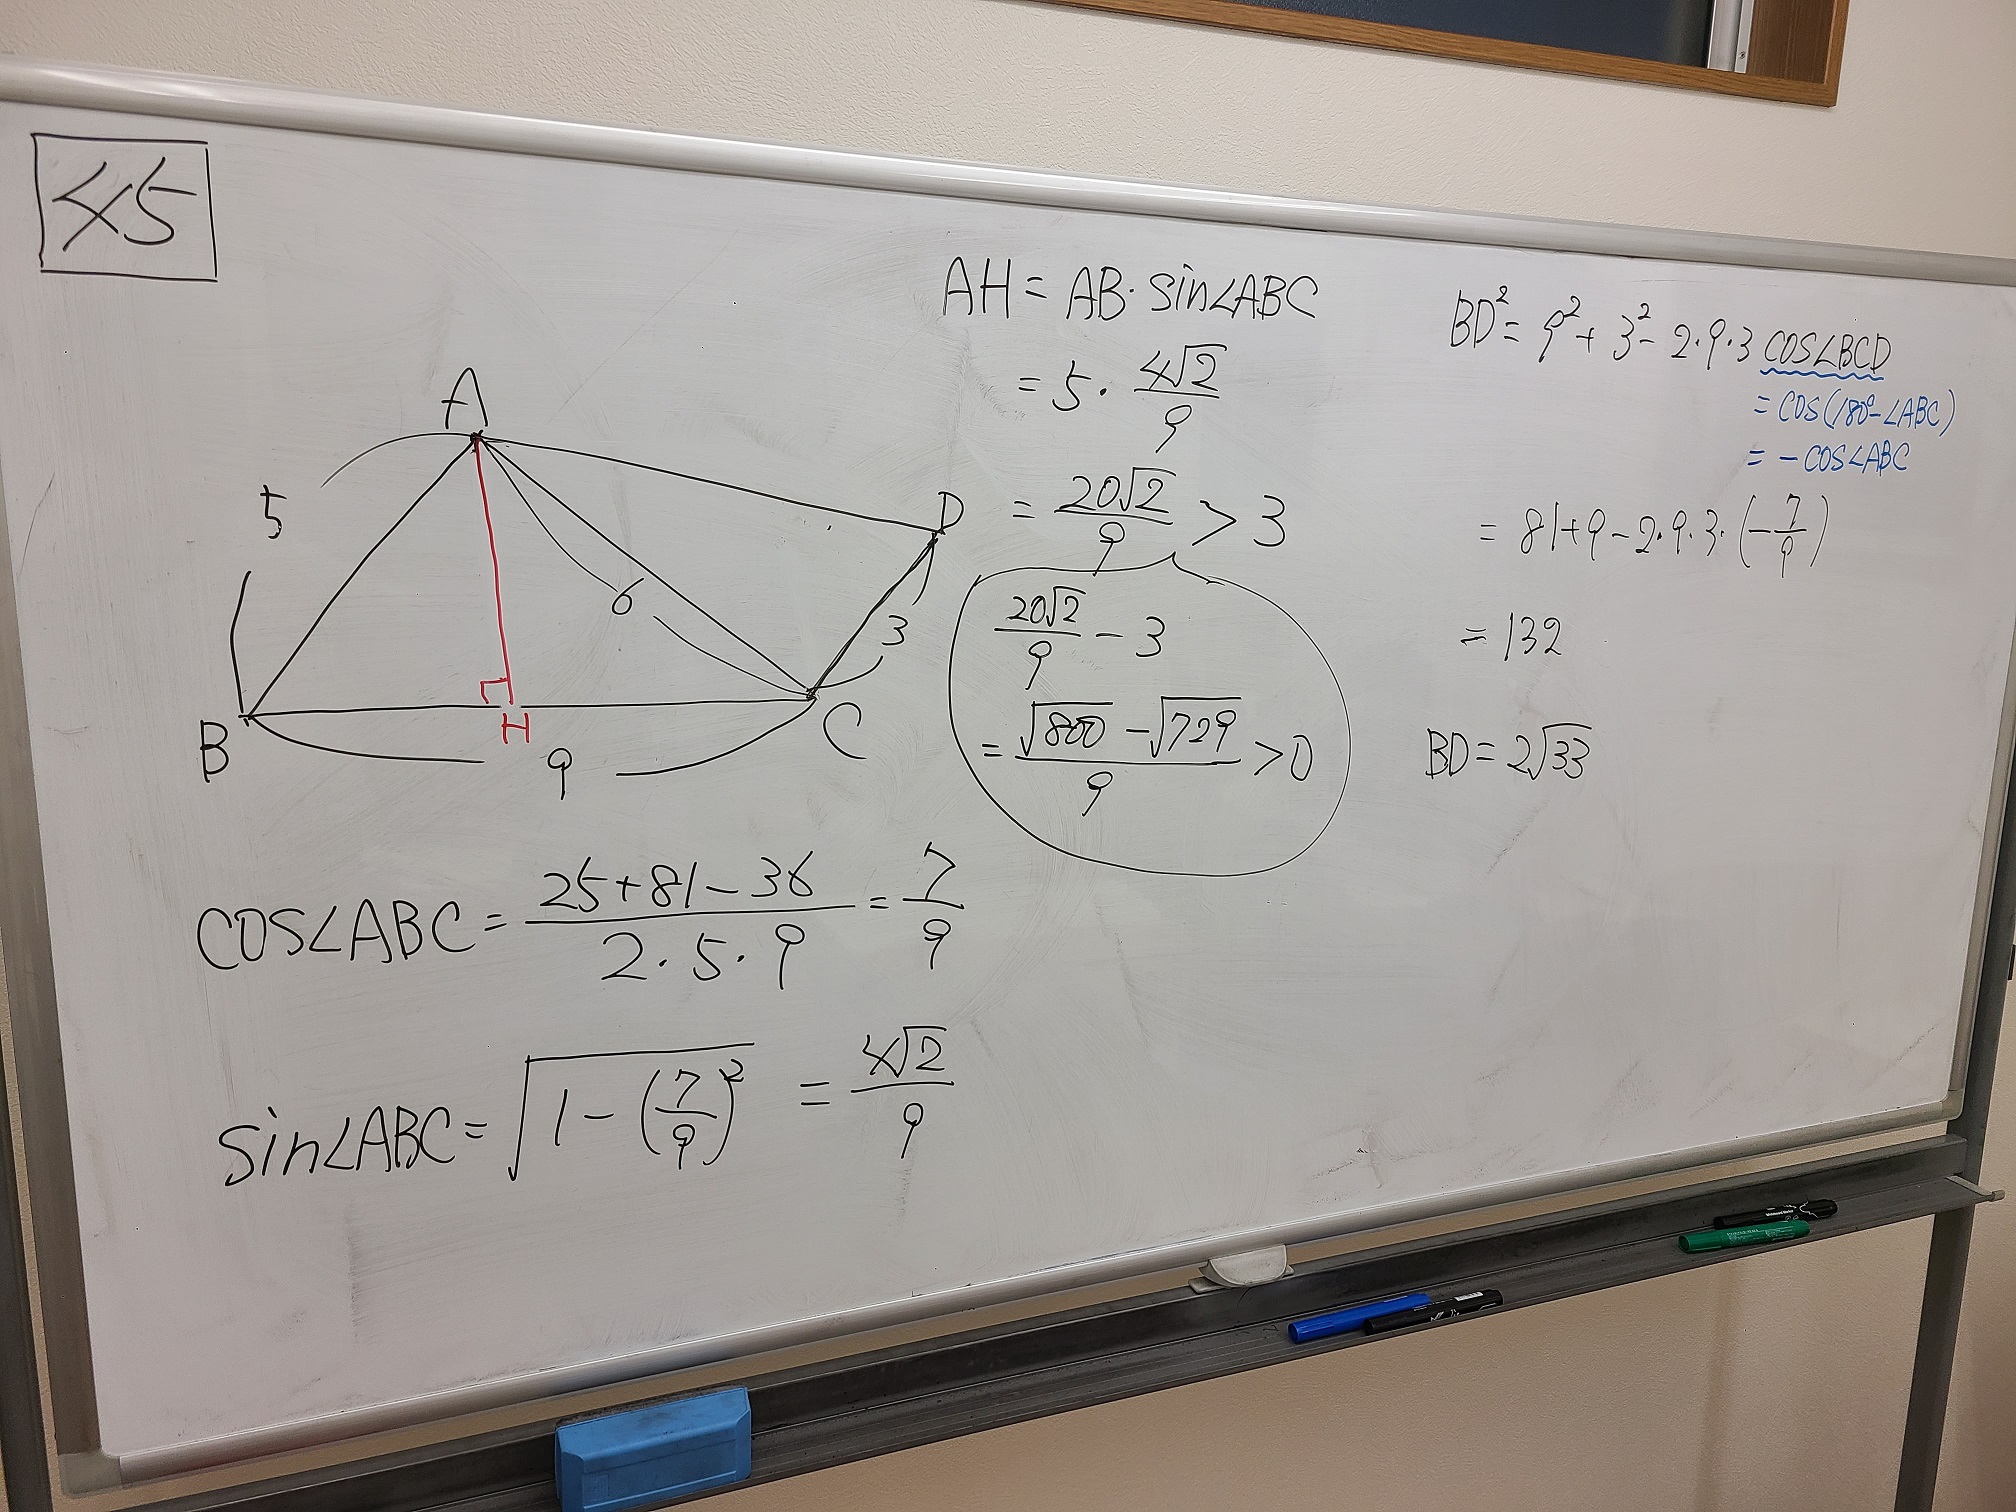 45
A
5
B
H
9
6
C
D
3
cos∠ABC = (25+81-36)/(2・5・9) = 7/9
sin∠ABC = √(1-(7/9)²) = 4√2/9
AH = AB・sin∠ABC
= 5・4√2/9
= 20√2/9 > 3
20√2/9 - 3
= (√800 - √729)/9 > 0
BD² = 9² + 3² - 2・9・3 cos∠BCD
= cos(180°-∠ABC)
= -cos∠ABC
= 81+9-2・9・3・(-7/9)
= 132
BD = 2√33